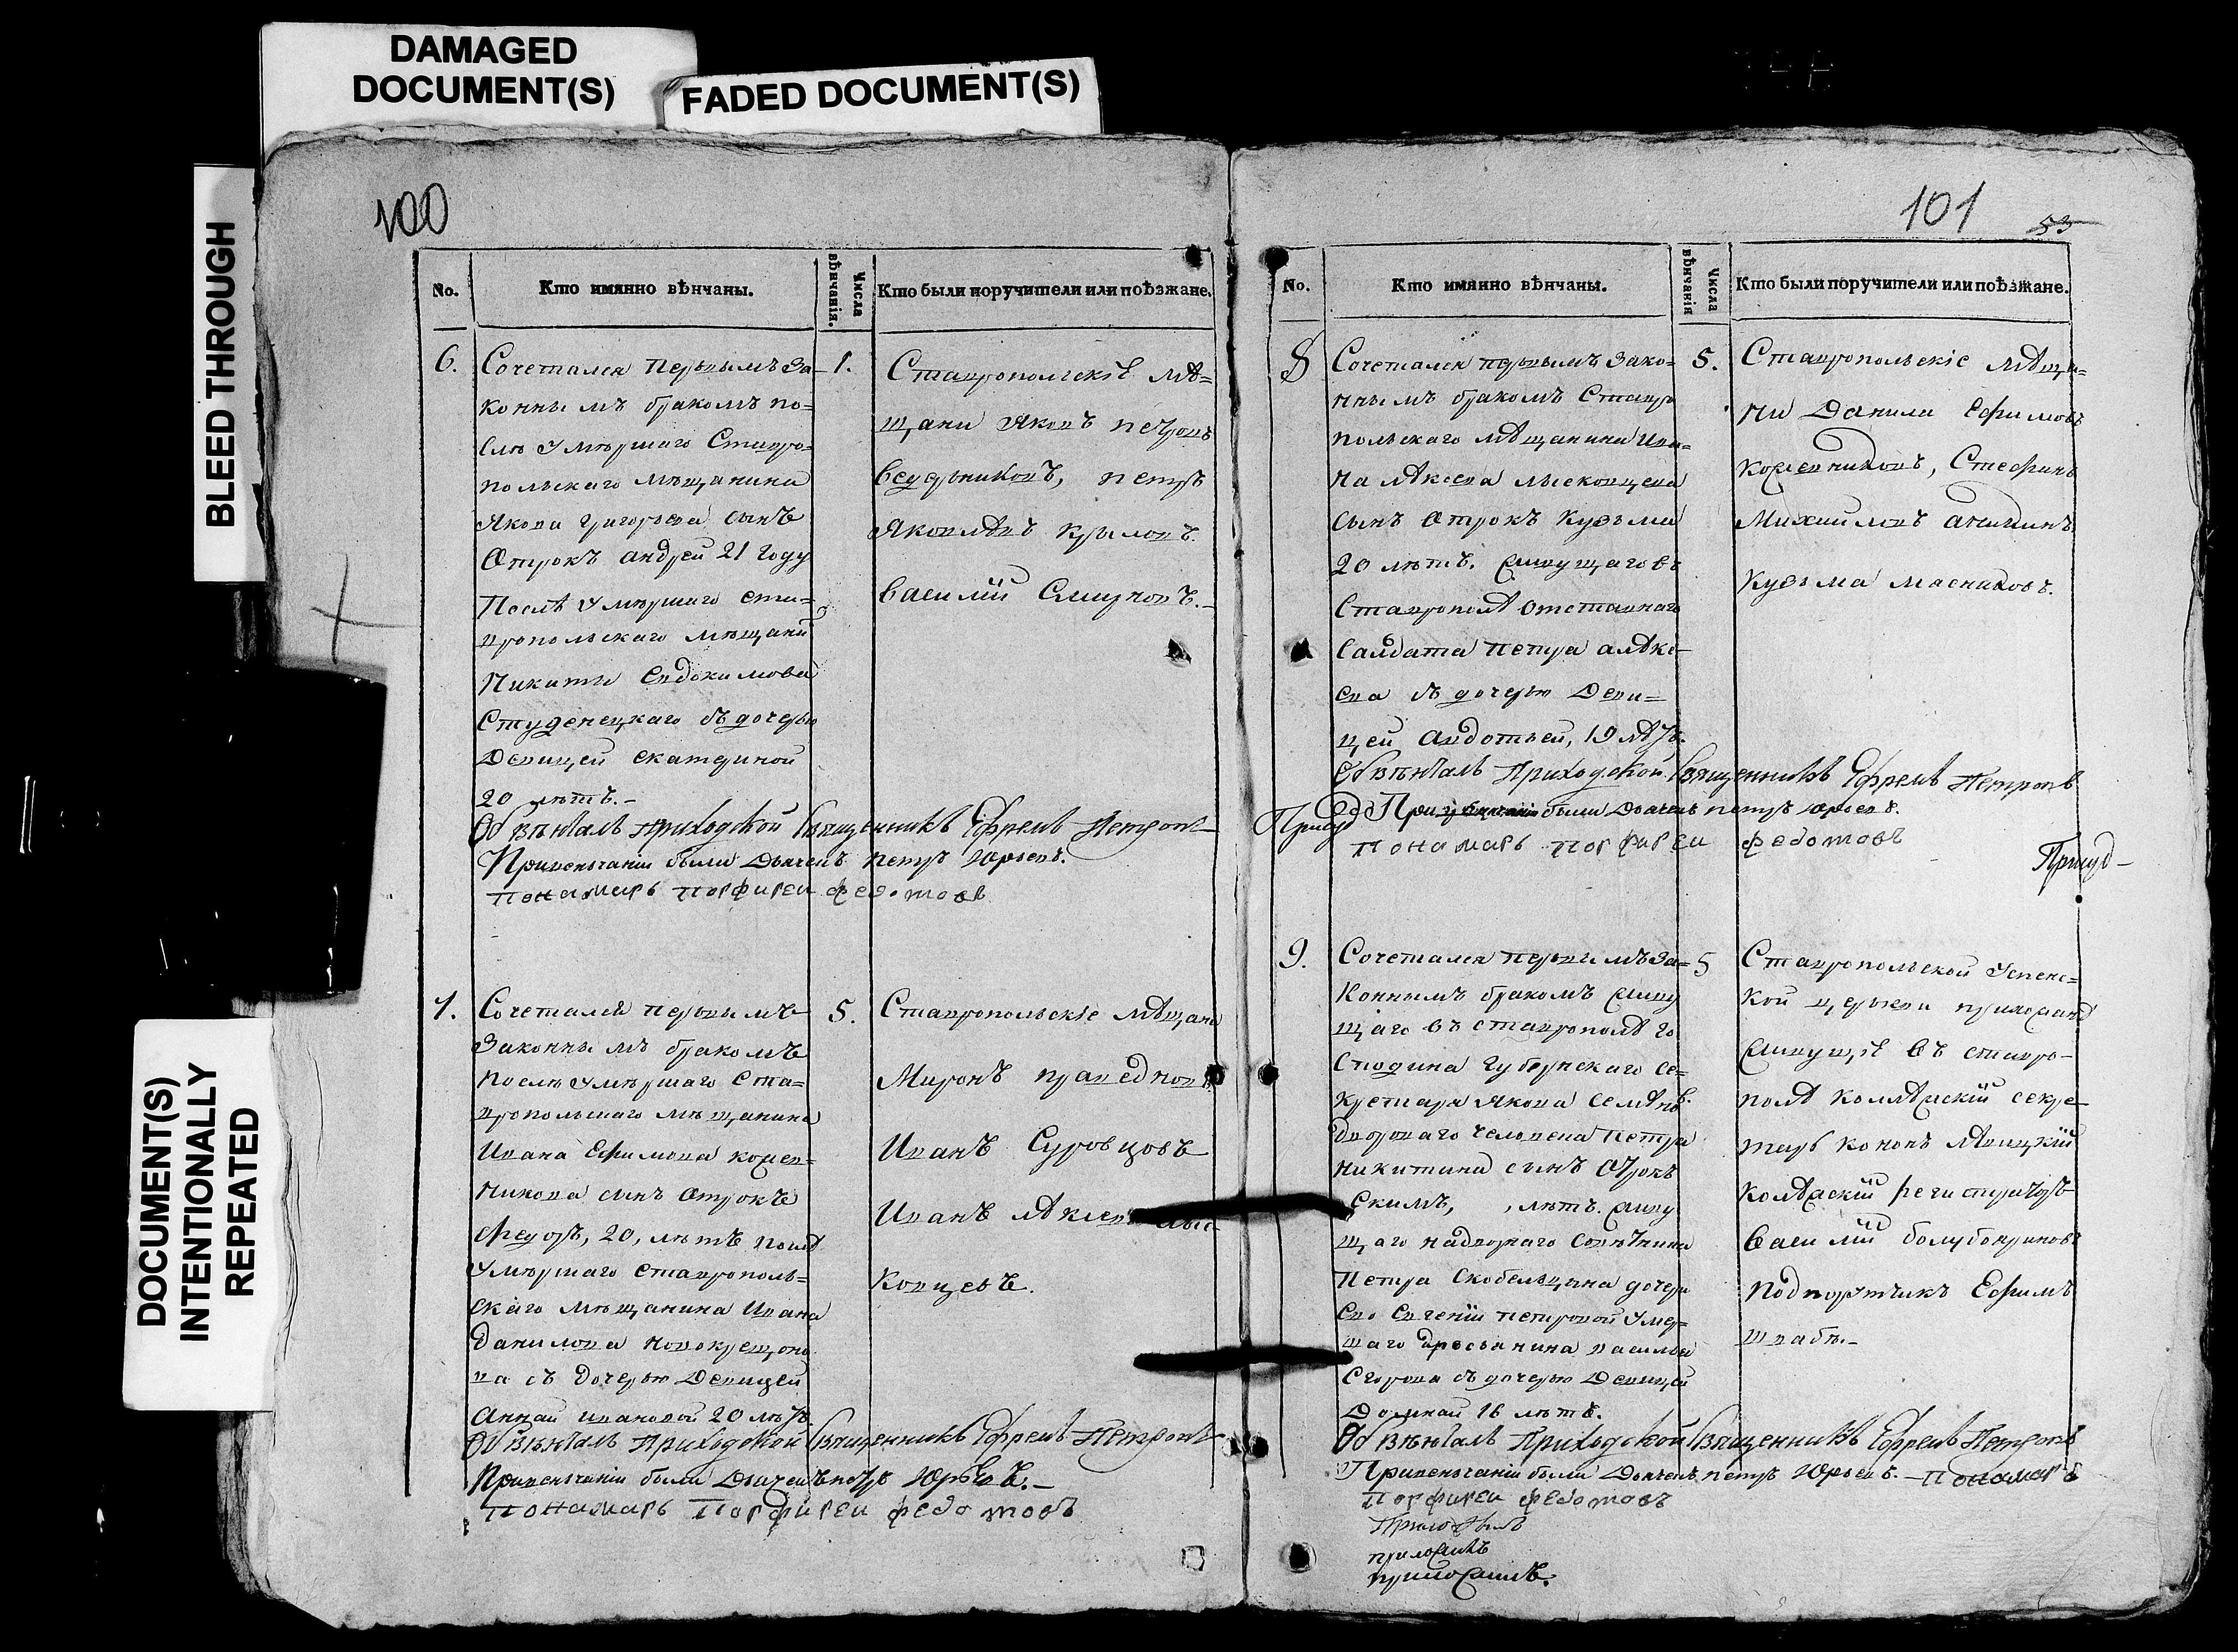 DAMAGED
DOCUMENT(S)
FADED DOCUMENT(S)
BLEED THROUGH
DOCUMENT(S)
INTENTIONALLY
REPEATED
100
No.
Кто имянно вѣнчаны.
Числа
вѣнчанія.
Кто были поручители или поѣзжане.
6.
Сочетался первымъ за-
коннымъ бракомъ по=
слѣ умѣршаго Ставро=
польскаго мѣщанина
Якова Григорьева сынъ
Отрокъ андрей 21 году
Послѣ умѣршаго ста=
вропольскаго мѣщани
Никиты Евдокимова
Студенецкаго съ дочерью
Девицей екатериной
20 лѣтъ.-
1.
Ставропольскiе мѣ=
щани Яковъ петровъ
Ведерниковъ, петръ
Яковлѣвъ Крыловъ.
василiй Смирновъ.-
Обвѣнчалъ приходской Священникъ Ефремъ Петровъ
Привенчанiи были Дьячекъ петръ Юрьевъ.
Понамарь Порфирей федотовъ
7.
Сочетался первымъ
Законнымъ бракомъ
послѣ умѣршаго Ста=
вропольскаго мѣщанина
Ивана Ефимова кожев=
никова сынъ отрокъ
Федоръ, 20, лѣтъ послѣ
умѣршаго ставрополь=
скаго мѣщанина Ивана
Данилова Новокрещоно
ва съ дочерью Девицей
Аннай ивановой 20 лѣтъ.
5.
Ставропольскiе мѣщане
Миронъ праведновъ
Иванъ Суровцовъ
Иванъ
Ковцевъ.
Обвѣнчалъ Приходской Священникъ Ефремъ Петровъ
Привенчанiи были Дьячекъ петръ Юрьевъ.-
Понамарь Порфирей федотовъ
101
53
No.
Кто имянно вѣнчаны.
Числа
вѣнчанія
Кто были поручители или поѣзжане.
8
Сочетался первымъ Зако=
ннымъ бракомъ Ставро
польскаго мѣщанина Ива=
на
сынъ отрокъ Кузьма
20 лѣтъ. живущаго въ
Ставрополѣ отставнаго
Салдата петра алѣкс-
ева съ дочерью Деви=
цей авдотьей, 19 лѣтъ.
5.
Ставропольскiе мѣща=
ни Данила Ефимовъ
Кожевниковъ, Стефанъ
Михайловъ аникинъ
Кузьма масниковъ.
Обвѣнчалъ Приходской Священникъ Ефремъ Петровъ
были Дьячекъ петръ Юрьевъ.
Понамарь Порфирей федотовъ
9.
Сочетался первымъ за=
коннымъ бракомъ живу
щаго въ ставрополѣ го
сподина Губернского Се=
кретаря Якова Семѣнов.
двороваго человека Петра
никитина сынъ отрокъ
Екимъ, , лѣтъ. живу
щаго надворнаго совѣтника
Петра Скобельцына дочери
Ево Евгенiи петровой умер=
шаго крестьянина васильи
Егорова съ дочерью Девицей
Домнай 16 лѣтъ.
5
Ставропольской Успенс=
кой церькви прихожанѣ
живущiе въ ставро-
полѣ коллѣжскiй секре-
тарь кононъ лѣвицкiй
колѣжскiй регистраторъ
василiй
подпортчикъ Ефимъ
швабъ.-
Обвѣнчалъ Приходской Священникъ Ефремъ Петровъ
Привенчанiи были Дьячекъ петръ Юрьевъ.- Понамарь
Порфирей федотовъ